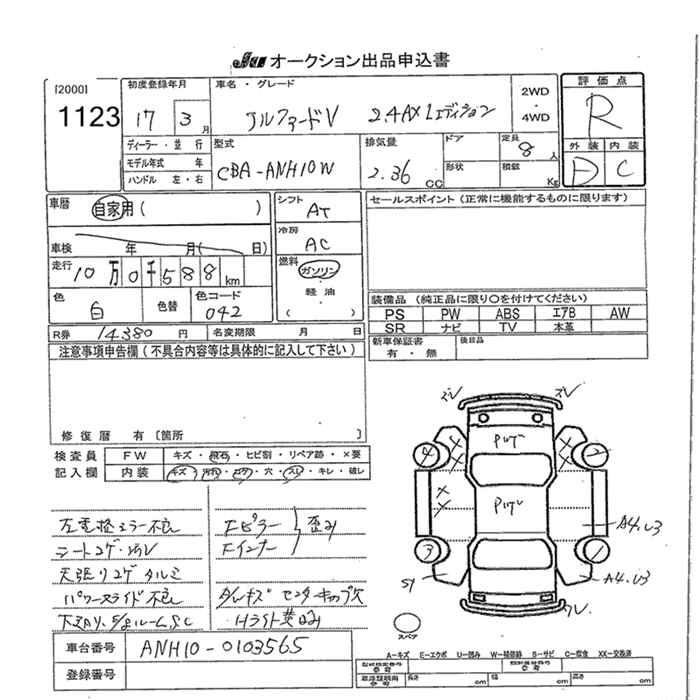 JU オークション出品申込書
[2000]
1123
初度登録年月
17 3 月
車名・グレード
アルファードV 2.4AX Lエディション
2WD
・
4WD
評価点
R
外装 内装
D C
ディーラー・並行
モデル年式 年
ハンドル 左・右
型式
CBA-ANH10W
排気量
2.36 CC
ドア
形状
定員
8 人
積載
Kg
車歴
自家用( )
車検 年 月( 日)
走行
10万0千588km
色
白
色替
色コード
042
シフト
AT
冷房
AC
燃料
ガソリン
・
軽油
( )
セールスポイント(正常に機能するものに限ります)
装備品(純正品に限り○を付けてください)
PS PW ABS エアB AW
SR ナビ TV 本革
新車保証書
有・無
後日品
R券 14,380 円 名変期限 月 日
注意事項申告欄(不具合内容等は具体的に記入して下さい)
修復歴 有〔箇所 〕
検査員 FW キズ・飛石・ヒビ割・リペア跡・×要
記入欄 内装 キズ・汚れ・コゲ・穴・スレ・キレ・破レ
左電格ミラー不良
シートコゲ・汚レ
天張りコゲ タルミ
パワースライド不良
Fピラー
Fインナー 歪み
センターキャップ欠
Hライト黄ばみ
車台番号 ANH10-0103565
登録番号
A4.U3
A4.U3
S1
4
2
3
1
スペア
A-キズ E-エクボ U-凹み W-補修跡 S-サビ C-腐食 XX-交換済
長さ cm 幅 cm 高さ cm